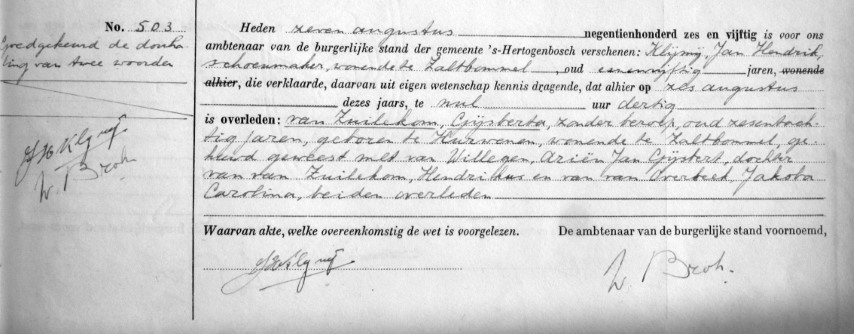 No. 503
Goedgekeurd de doorha-
ling van twee woorden
Heden zeven augustus negentienhonderd zes en vijftig is voor ons
ambtenaar van de burgerlijke stand der gemeente 's-Hertogenbosch verschenen: Klijnij, Jan Hendrik,
schoenmaker, wonende te Zaltbommel, oud eenenvijftig jaren, wonende
alhier, die verklaarde, daarvan uit eigen wetenschap kennis dragende, dat alhier op zes augustus
dezes jaars, te nul uur dertig
is overleden: van Zuilekom, Gijsberta, zonder beroep, oud zesentach-
tig jaren, geboren te Hurwenen, wonende te Zaltbommel, ge-
huwd geweest met van Willegen, Ariën Jan Gijsbert, dochter
van van Zuilekom, Hendrikus en van van Overbeek Jakoba
Carolina, beiden overleden
Waarvan akte, welke overeenkomstig de wet is voorgelezen.
De ambtenaar van de burgerlijke stand voornoemd,